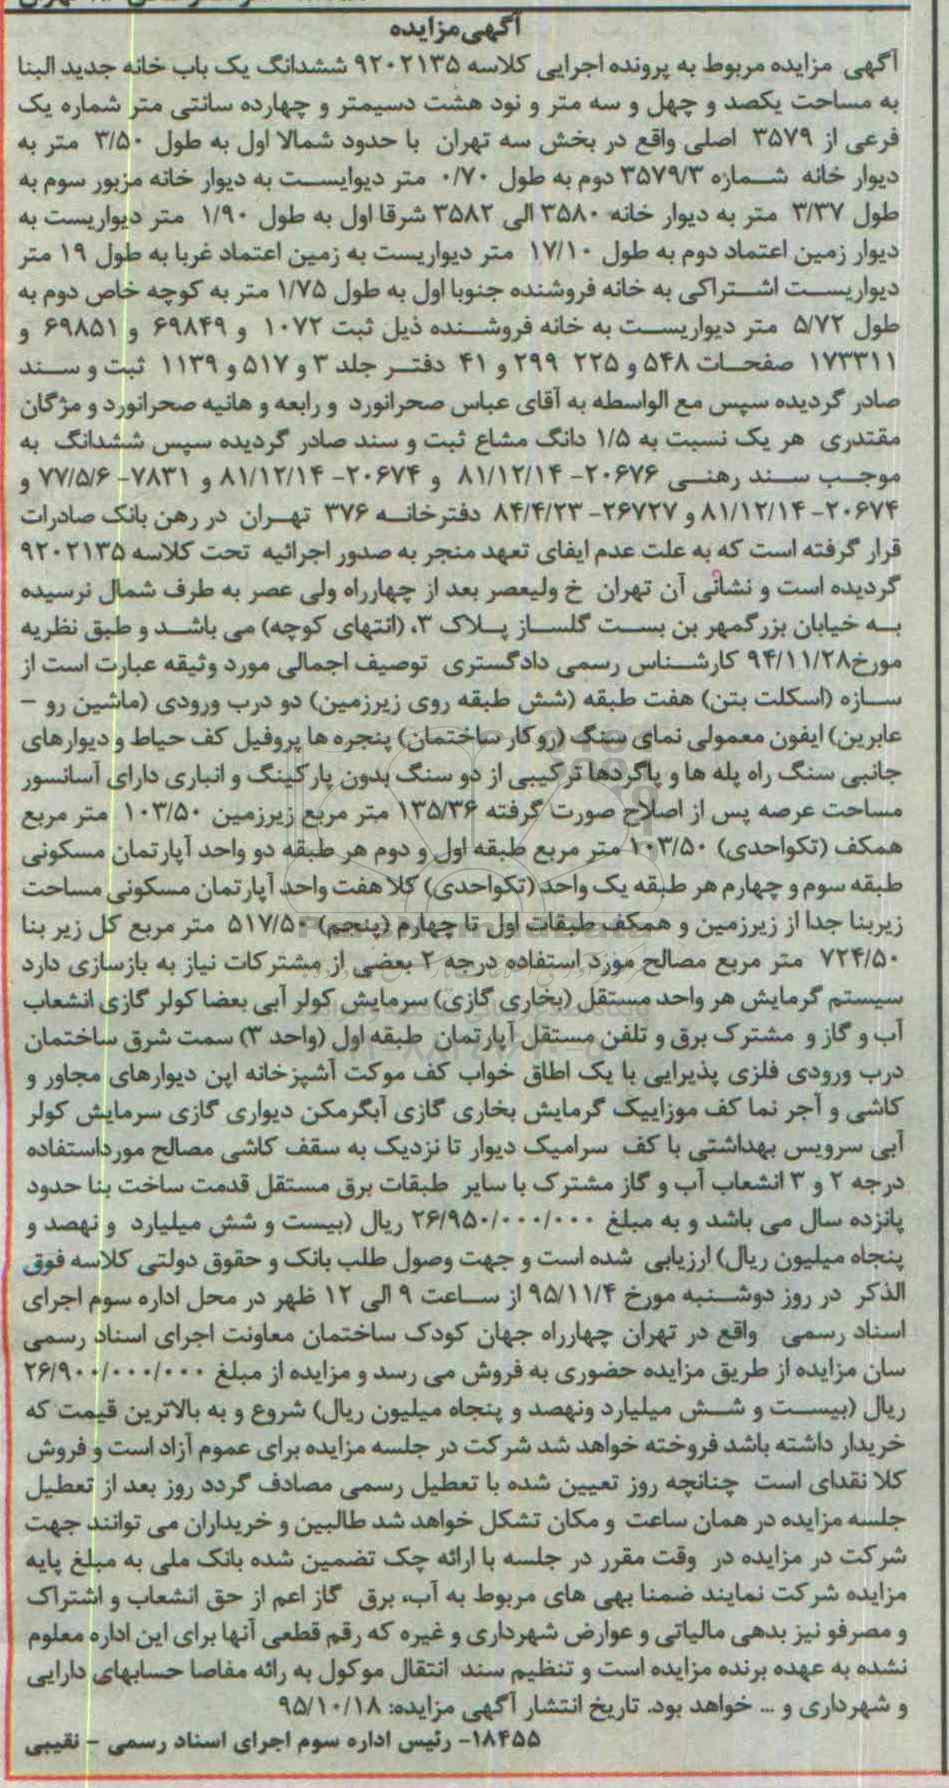 آگهی مزایده
آگهی مزایده مربوط به پرونده اجرایی کلاسه ۹۲۰۲۱۳۵ ششدانگ یک باب خانه جدید البنا
به مساحت یکصد و چهل و سه متر و نود هشت دسیمتر و چهارده سانتی متر شماره یک
فرعی از ۳۵۷۹ اصلی واقع در بخش سه تهران با حدود شمالا اول به طول ۳/۵۰ متر به
دیوار خانه شماره ۳۵۷۹/۳ دوم به طول ۰/۷۰ متر دیوایست به دیوار خانه مزبور سوم به
طول ۳/۳۷ متر به دیوار خانه ۳۵۸۰ الی ۳۵۸۲ شرقا اول به طول ۱/۹۰ متر دیواریست به
دیوار زمین اعتماد دوم به طول ۱۷/۱۰ متر دیواریست به زمین اعتماد غربا به طول ۱۹ متر
دیواریست اشتراکی به خانه فروشنده جنوبا اول به طول ۱/۷۵ متر به کوچه خاص دوم به
طول ۵/۷۲ متر دیواریست به خانه فروشنده ذیل ثبت ۱۰۷۲ و ۶۹۸۴۹ و ۶۹۸۵۱ و
۱۷۳۳۱۱ صفحات ۵۴۸ و ۲۲۵ ۲۹۹ و ۴۱ دفتر جلد ۳ و ۵۱۷ و ۱۱۳۹ ثبت و سند
صادر گردیده سپس مع الواسطه به آقای عباس صحرانورد و رابعه و هانیه صحرانورد و مژگان
مقتدری هر یک نسبت به ۱/۵ دانگ مشاع ثبت و سند صادر گردیده سپس ششدانگ به
موجب سند رهنی ۲۰۶۷۶- ۸۱/۱۲/۱۴ و ۲۰۶۷۴- ۸۱/۱۲/۱۴ و ۷۸۳۱- ۷۷/۵/۶ و
۲۰۶۷۴- ۸۱/۱۲/۱۴ و ۲۶۷۲۷- ۸۴/۴/۲۳ دفترخانه ۳۷۶ تهران در رهن بانک صادرات
قرار گرفته است که به علت عدم ایفای تعهد منجر به صدور اجرائیه تحت کلاسه ۹۲۰۲۱۳۵
گردیده است و نشانی آن تهران خ ولیعصر بعد از چهارراه ولی عصر به طرف شمال نرسیده
به خیابان بزرگمهر بن بست گلساز پلاک ۳، (انتهای کوچه) می باشد و طبق نظریه
مورخ۹۴/۱۱/۲۸ کارشناس رسمی دادگستری توصیف اجمالی مورد وثیقه عبارت است از
سازه (اسکلت بتن) هفت طبقه (شش طبقه روی زیرزمین) دو درب ورودی (ماشین رو -
عابرین) ایفون معمولی نمای سنگ (روکار ساختمان) پنجره ها پروفیل کف حیاط و دیوارهای
جانبی سنگ راه پله ها و پاگردها ترکیبی از دو سنگ بدون پارکینگ و انباری دارای آسانسور
مساحت عرصه پس از اصلاح صورت گرفته ۱۳۵/۳۶ متر مربع زیرزمین ۱۰۳/۵۰ متر مربع
همکف (تکواحدی) ۱۰۳/۵۰ متر مربع طبقه اول و دوم هر طبقه دو واحد آپارتمان مسکونی
طبقه سوم و چهارم هر طبقه یک واحد (تکواحدی) کلا هفت واحد آپارتمان مسکونی مساحت
زیربنا جدا از زیرزمین و همکف طبقات اول تا چهارم (پنجم) ۵۱۷/۵۰ متر مربع کل زیر بنا
۷۲۴/۵۰ متر مربع مصالح مورد استفاده درجه ۲ بعضی از مشترکات نیاز به بازسازی دارد
سیستم گرمایش هر واحد مستقل (بخاری گازی) سرمایش کولر آبی بعضا کولر گازی انشعاب
آب و گاز و مشترک برق و تلفن مستقل آپارتمان طبقه اول (واحد ۳) سمت شرق ساختمان
درب ورودی فلزی پذیرایی با یک اطاق خواب کف موکت آشپزخانه اپن دیوارهای مجاور و
کاشی و آجر نما کف موزاییک گرمایش بخاری گازی آبگرمکن دیواری گازی سرمایش کولر
آبی سرویس بهداشتی با کف سرامیک دیوار تا نزدیک به سقف کاشی مصالح مورداستفاده
درجه ۲ و ۳ انشعاب آب و گاز مشترک با سایر طبقات برق مستقل قدمت ساخت بنا حدود
پانزده سال می باشد و به مبلغ ۲۶/۹۵۰/۰۰۰/۰۰۰ ریال (بیست و شش میلیارد و نهصد و
پنجاه میلیون ریال) ارزیابی شده است و جهت وصول طلب بانک و حقوق دولتی کلاسه فوق
الذکر در روز دوشنبه مورخ ۹۵/۱۱/۴ از ساعت ۹ الی ۱۲ ظهر در محل اداره سوم اجرای
اسناد رسمی واقع در تهران چهارراه جهان کودک ساختمان معاونت اجرای اسناد رسمی
سان مزایده از طریق مزایده حضوری به فروش می رسد و مزایده از مبلغ ۲۶/۹۰۰/۰۰۰/۰۰۰
ریال (بیست و شش میلیارد ونهصد و پنجاه میلیون ریال) شروع و به بالاترین قیمت که
خریدار داشته باشد فروخته خواهد شد شرکت در جلسه مزایده برای عموم آزاد است و فروش
کلا نقدای است چنانچه روز تعیین شده با تعطیل رسمی مصادف گردد روز بعد از تعطیل
جلسه مزایده در همان ساعت و مکان تشکل خواهد شد طالبین و خریداران می توانند جهت
شرکت در مزایده در وقت مقرر در جلسه با ارائه چک تضمین شده بانک ملی به مبلغ پایه
مزایده شرکت نمایند ضمنا بهی های مربوط به آب، برق گاز اعم از حق انشعاب و اشتراک
و مصرفو نیز بدهی مالیاتی و عوارض شهرداری و غیره که رقم قطعی آنها برای این اداره معلوم
نشده به عهده برنده مزایده است و تنظیم سند انتقال موکول به رائه مفاصا حسابهای دارایی
و شهرداری و ... خواهد بود. تاریخ انتشار آگهی مزایده: ۹۵/۱۰/۱۸
۱۸۴۵۵- رئیس اداره سوم اجرای اسناد رسمی - نقیبی